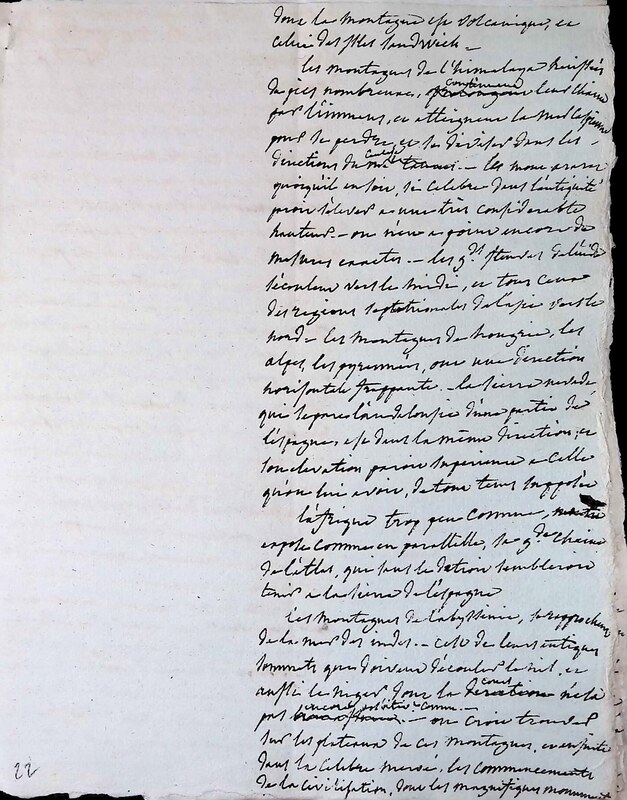 dont la montagne est volcanique, et
celui des isles sandwich —
les montagnes de l'himalaya hérissées
de pics nombreuses, continuent leur chaine
par l'immens, et atteignent la mer caspienne
pour se perdre, et se diviser dans les
directions du — les monts ararat
quoiqu'il en soit, si celebre dans l'antiquité
paroit s'élever a une très considerable
hauteur — on n'en a point encore de
mesures exactes — les gds fleuves de l'inde
s'écoulent vers le midi, et tous ceux
des regions septentrionales de l'asie vers le
nord — les montagnes de hongrie, les
alpes, les pyrennées, ont une direction
horisontale frappante. — la sierra nevada
qui separe l'andalousie d'une partie de
l'espagne, est dans la même direction, et
son elevation paroit superieure a celle
qu'on lui avoit, de tout tems supposée
l'afrique trop peu connue,
expose comme en parallelle, sa gde chaine
de l'atlas, que sous le détroit sembleroit
tenir a la sierra de l'espagne
les montagnes de l'abyssinie, se rapprochent
de la mer des indes. — c'est de leurs antiques
sommets que doivent découler le nil, et
aussi le niger dont la cours n'est
pas encore positivt connu. —
on croit trouver
sur les plateaux de ces montagnes, et ensuite
dans la celebre meroé, les commencements
de la civilisation, dont les magnifiques monuments
22